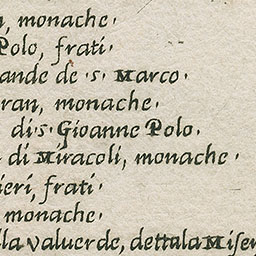 , monache·
Polo, frati·
ande de ·s· Marco·
ran, monache·
di·s· Gioanne Polo·
di Miracoli, monache·
ieri, frati·
monache·
la valuerde, dettala Miser